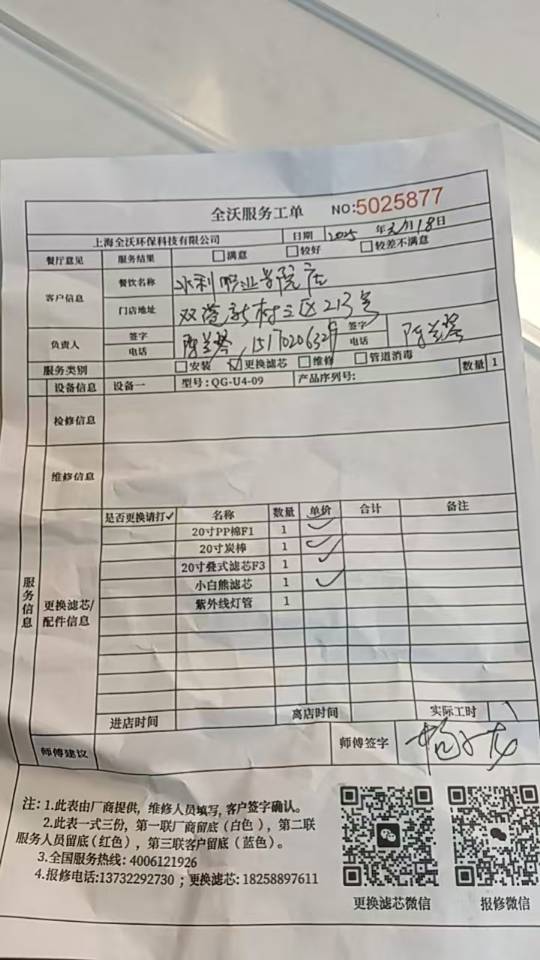 全沃服务工单 NO:5025877
上海全沃环保科技有限公司 日期 2025 年 3 月 18 日
餐厅意见 服务结果 满意 较好 较差不满意
客户信息 餐饮名称 水利职业学院店
门店地址 双莲新村三区213号
负责人 签字 电话 15170206329 签字 电话
服务类别 安装 ✓更换滤芯 维修 管道消毒 数量 1
设备信息 设备一 型号：QG-U4-09 产品序列号：
检修信息
维修信息
服务信息
更换滤芯/配件信息
是否更换请打✓ 名称 数量 单价 合计 备注
20寸PP棉F1 1 ✓
20寸炭棒 1 ✓
20寸叠式滤芯F3 1 ✓
小白熊滤芯 1 ✓
紫外线灯管 1
进店时间 离店时间 实际工时
师傅建议 师傅签字
注：1.此表由厂商提供，维修人员填写，客户签字确认。
2.此表一式三份，第一联厂商留底（白色），第二联
服务人员留底（红色），第三联客户留底（蓝色）。
3.全国服务热线：4006121926
4.报修电话:13732292730；更换滤芯: 18258897611
更换滤芯微信 报修微信